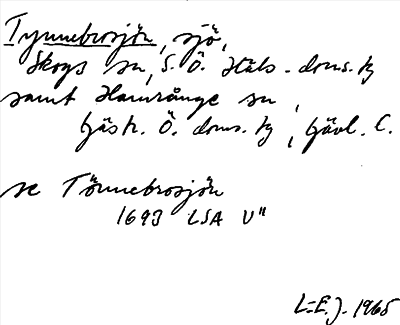 Tynnebrosjön, sjö,
Skogs sn, S. Ö. Häls. doms. tg
samt Hamrånge sn,
Gästr. Ö. doms. tg, Gävl. l.
se Tönnebrosjön
1693 LSA U"
L-E. J. 1965